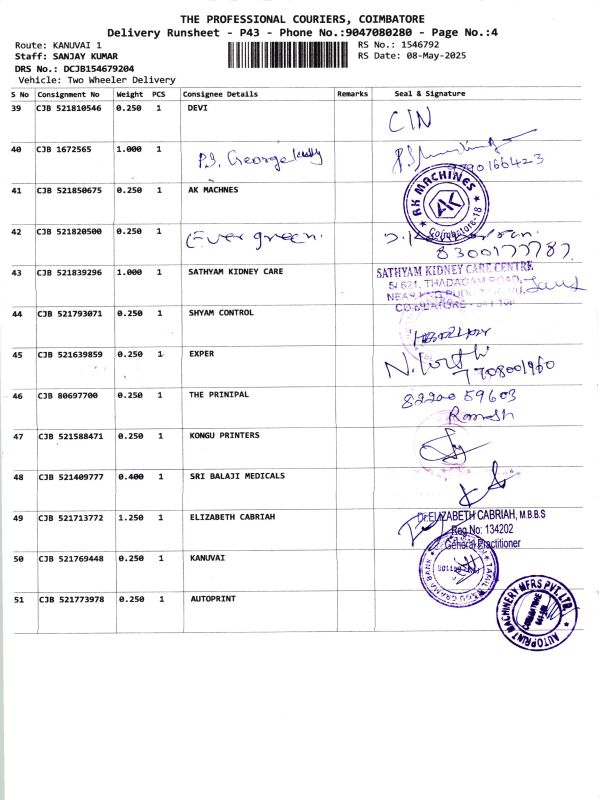 THE PROFESSIONAL COURIERS, COIMBATORE
Delivery Runsheet - P43 - Phone No.:9047080280 - Page No.:4
Route: KANUVAI 1 RS No.: 1546792
Staff: SANJAY KUMAR RS Date: 08-May-2025
DRS No.: DCJB154679204
Vehicle: Two Wheeler Delivery
S No Consignment No Weight PCS Consignee Details Remarks Seal & Signature
39 CJB 521810546 0.250 1 DEVI
CIN
40 CJB 1672565 1.000 1 P.J. George
AK MACHINES
AK
Coimbatore-18
41 CJB 521850675 0.250 1 AK MACHNES
42 CJB 521820500 0.250 1 Ever green.
8300177787.
43 CJB 521839296 1.000 1 SATHYAM KIDNEY CARE
SATHYAM KIDNEY CARE CENTRE
5/621, THADAGAM ROAD,
44 CJB 521793071 0.250 1 SHYAM CONTROL
45 CJB 521639859 0.250 1 EXPER
7708001960
46 CJB 80697700 0.250 1 THE PRINIPAL
82200 59603
Ramesh
47 CJB 521588471 0.250 1 KONGU PRINTERS
48 CJB 521409777 0.400 1 SRI BALAJI MEDICALS
49 CJB 521713772 1.250 1 ELIZABETH CABRIAH
Dr.ELIZABETH CABRIAH, M.B.B.S
Reg No: 134202
General Practitioner
50 CJB 521769448 0.250 1 KANUVAI
51 CJB 521773978 0.250 1 AUTOPRINT
AUTOPRINT MACHINERY MFRS PVT. LTD.